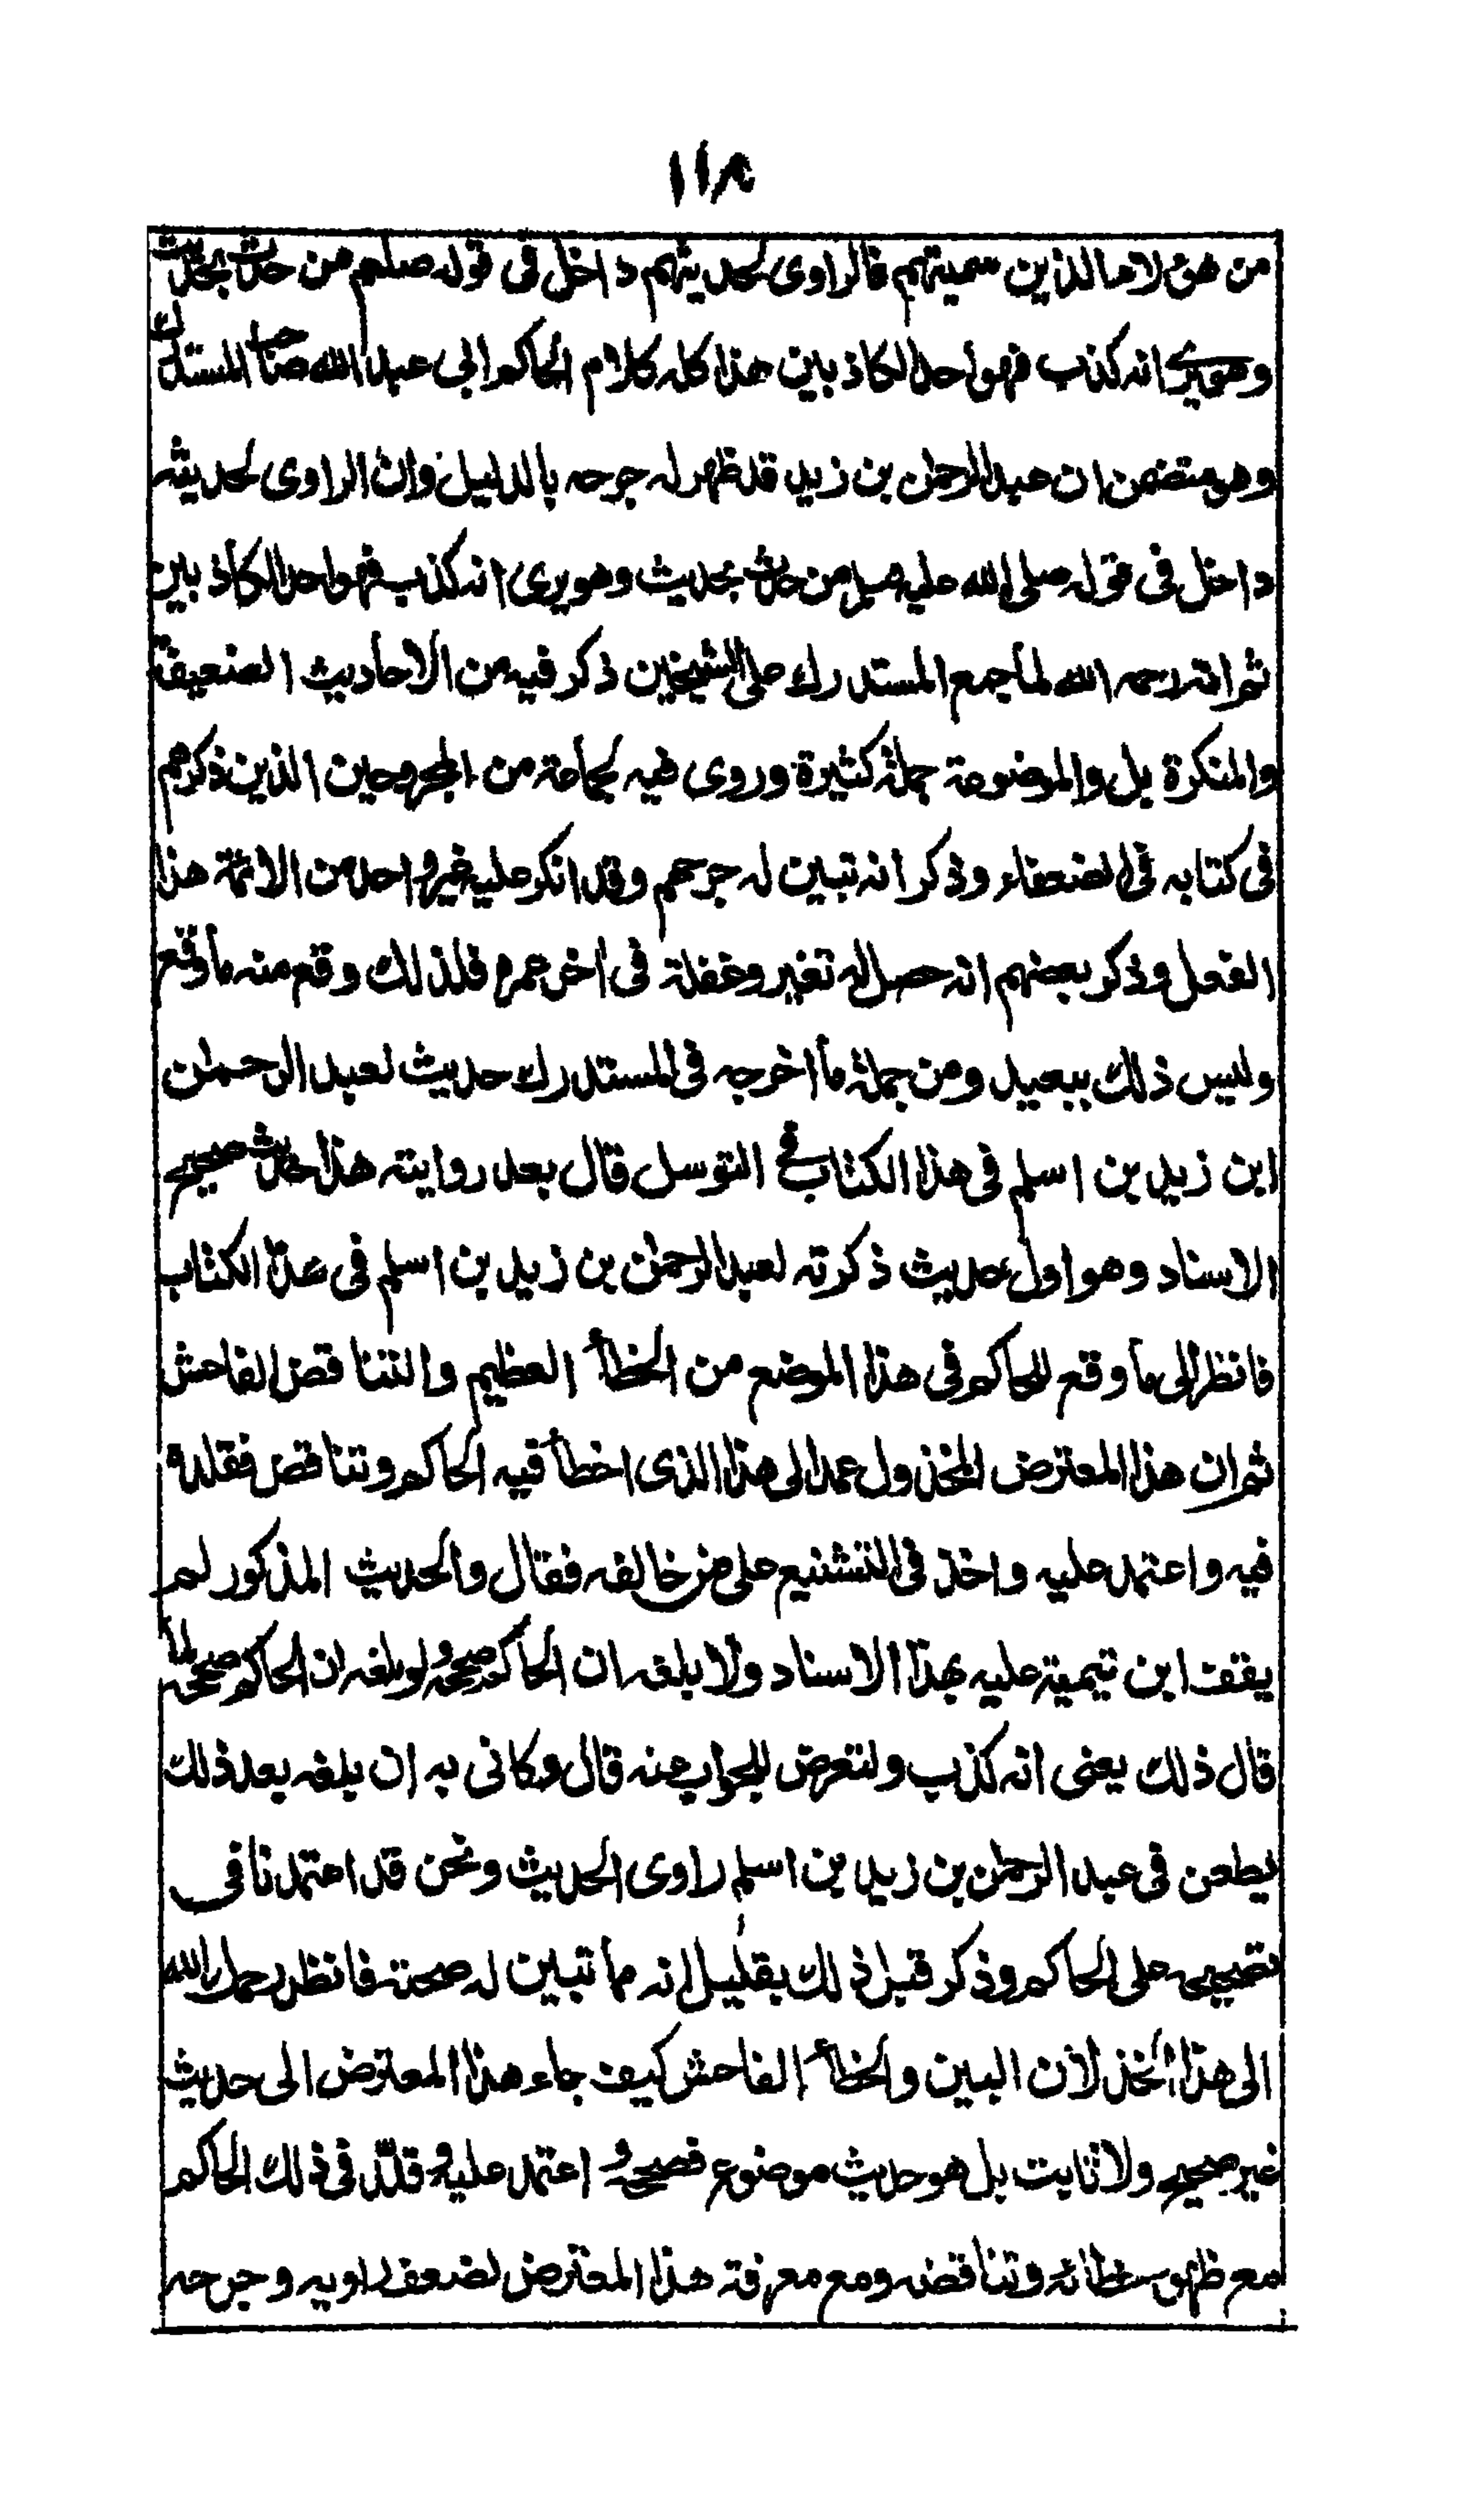 ١١٨
من هؤلاء الذين سميتهم فالراوى لحديثهم داخل فى قوله صلعم من حدث بحديث
وهو يرى انه كذب فهو احد الكاذبين هذا كله كلام الحاكم ابى عبد الله صاحب المستدرك
وهو متضمن ان عبد الرحمن بن زيد قد ظهر له جرحه بالدليل وان الراوى لحديثه
داخل فى قوله صلى الله عليه وسلم من حدث بحديث وهو يرى انه كذب فهو احد الكاذبين
ثم انه رحمه الله لما جمع المستدرك على الشيخين ذكر فيه من الاحاديث الضعيفة
والمنكرة بل والموضوعة جملة كثيرة وروى فيه لجماعة من المجروحين الذين ذكرهم
فى كتابه فى الضعفاء وذكر انه تبين له جرحهم وقد انكر عليه غير واحد من الائمة هذا
الفعل وذكر بعضهم انه حصل له تغير وغفلة فى اخر عمره فلذلك وقع منه ما وقع
وليس ذلك ببعيد ومن جملة ما اخرجه فى المستدرك حديث لعبد الرحمن
ابن زيد بن اسلم فى هذا الكتاب فى التوسل قال بعد روايته هذا حديث صحيح
الاسناد وهو اول حديث ذكرته لعبد الرحمن بن زيد بن اسلم فى هذا الكتاب
فانظر الى ما وقع للحاكم فى هذا الموضع من الخطأ العظيم والتناقض الفاحش
ثم ان هذا المعترض المخذول عمد الى هذا الذى اخطأ فيه الحاكم وتناقض فقلده
فيه واعتمد عليه واخذ فى التشنيع على من خالفه فقال والحديث المذكور لم
يقف ابن تيمية عليه بهذا الاسناد ولا بلغه ان الحاكم صححه ولو بلغه ان الحاكم صححه لما
قال ذلك يعنى انه كذب ولتعرض للجواب عنه قال وكانى به ان بلغه بعد ذلك
يطعن فى عبد الرحمن بن زيد بن اسلم راوى الحديث ونحن قد اعتمدنا فى
تصحيحه على الحاكم وذكر قبل ذلك بقليل انه مما تبين له صحته فانظر رحمك الله
الى هذا الخذلان البين والخطأ الفاحش كيف جاء هذا المعترض الى حديث
غير صحيح ولا ثابت بل هو حديث موضوع فصححه و اعتمد عليه و قلد فى ذلك الحاكم
مع ظهور خطائه وتناقضه ومع معرفة هذا المعترض لضعف راويه وجرحه